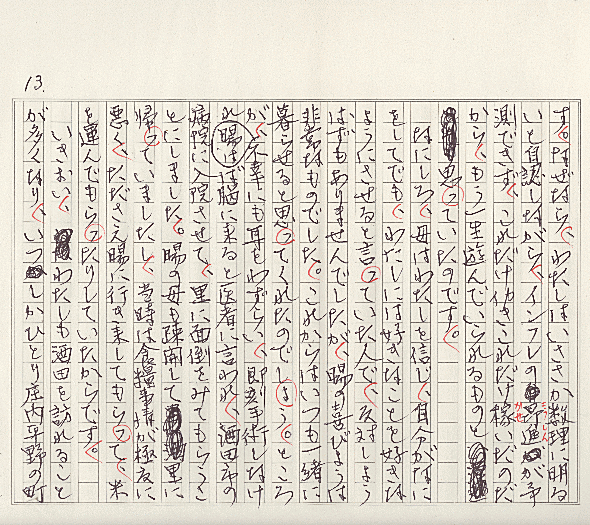 13.
す。なぜなら、わたしはいささか数理に明る
いと自認しながら、インフレの進が予
測できず、これだけ働きこれだけ稼いだのだ
から、もう一生遊んでいられるものと
思っていたのです。
なにしろ、母はわたしを信じ、自分がなに
をしてでも、わたしには好きなことを好きな
ようにさせると言っていたんで、反対しよう
はずもありませんでしたが、暘の喜びようは
非常なものでした。これからはいつも一緒に
暮らせると思ってくれたのでしょう。ところ
が、不幸にも耳をわずらい、しなけ
れば脳に来ると医者に言われ、酒田市の
病院に入院させて、里に面倒をみてもらうこ
とにしました。暘の母も疎開して里に
帰っていましたし、当時は食糧事情が極度に
悪く、たださえ暘に行き来してもらって、米
を運んでもらったりしていたからです。
いきおい、わたしも酒田を訪れること
が多くなり、いつしかひとり庄内平野の町